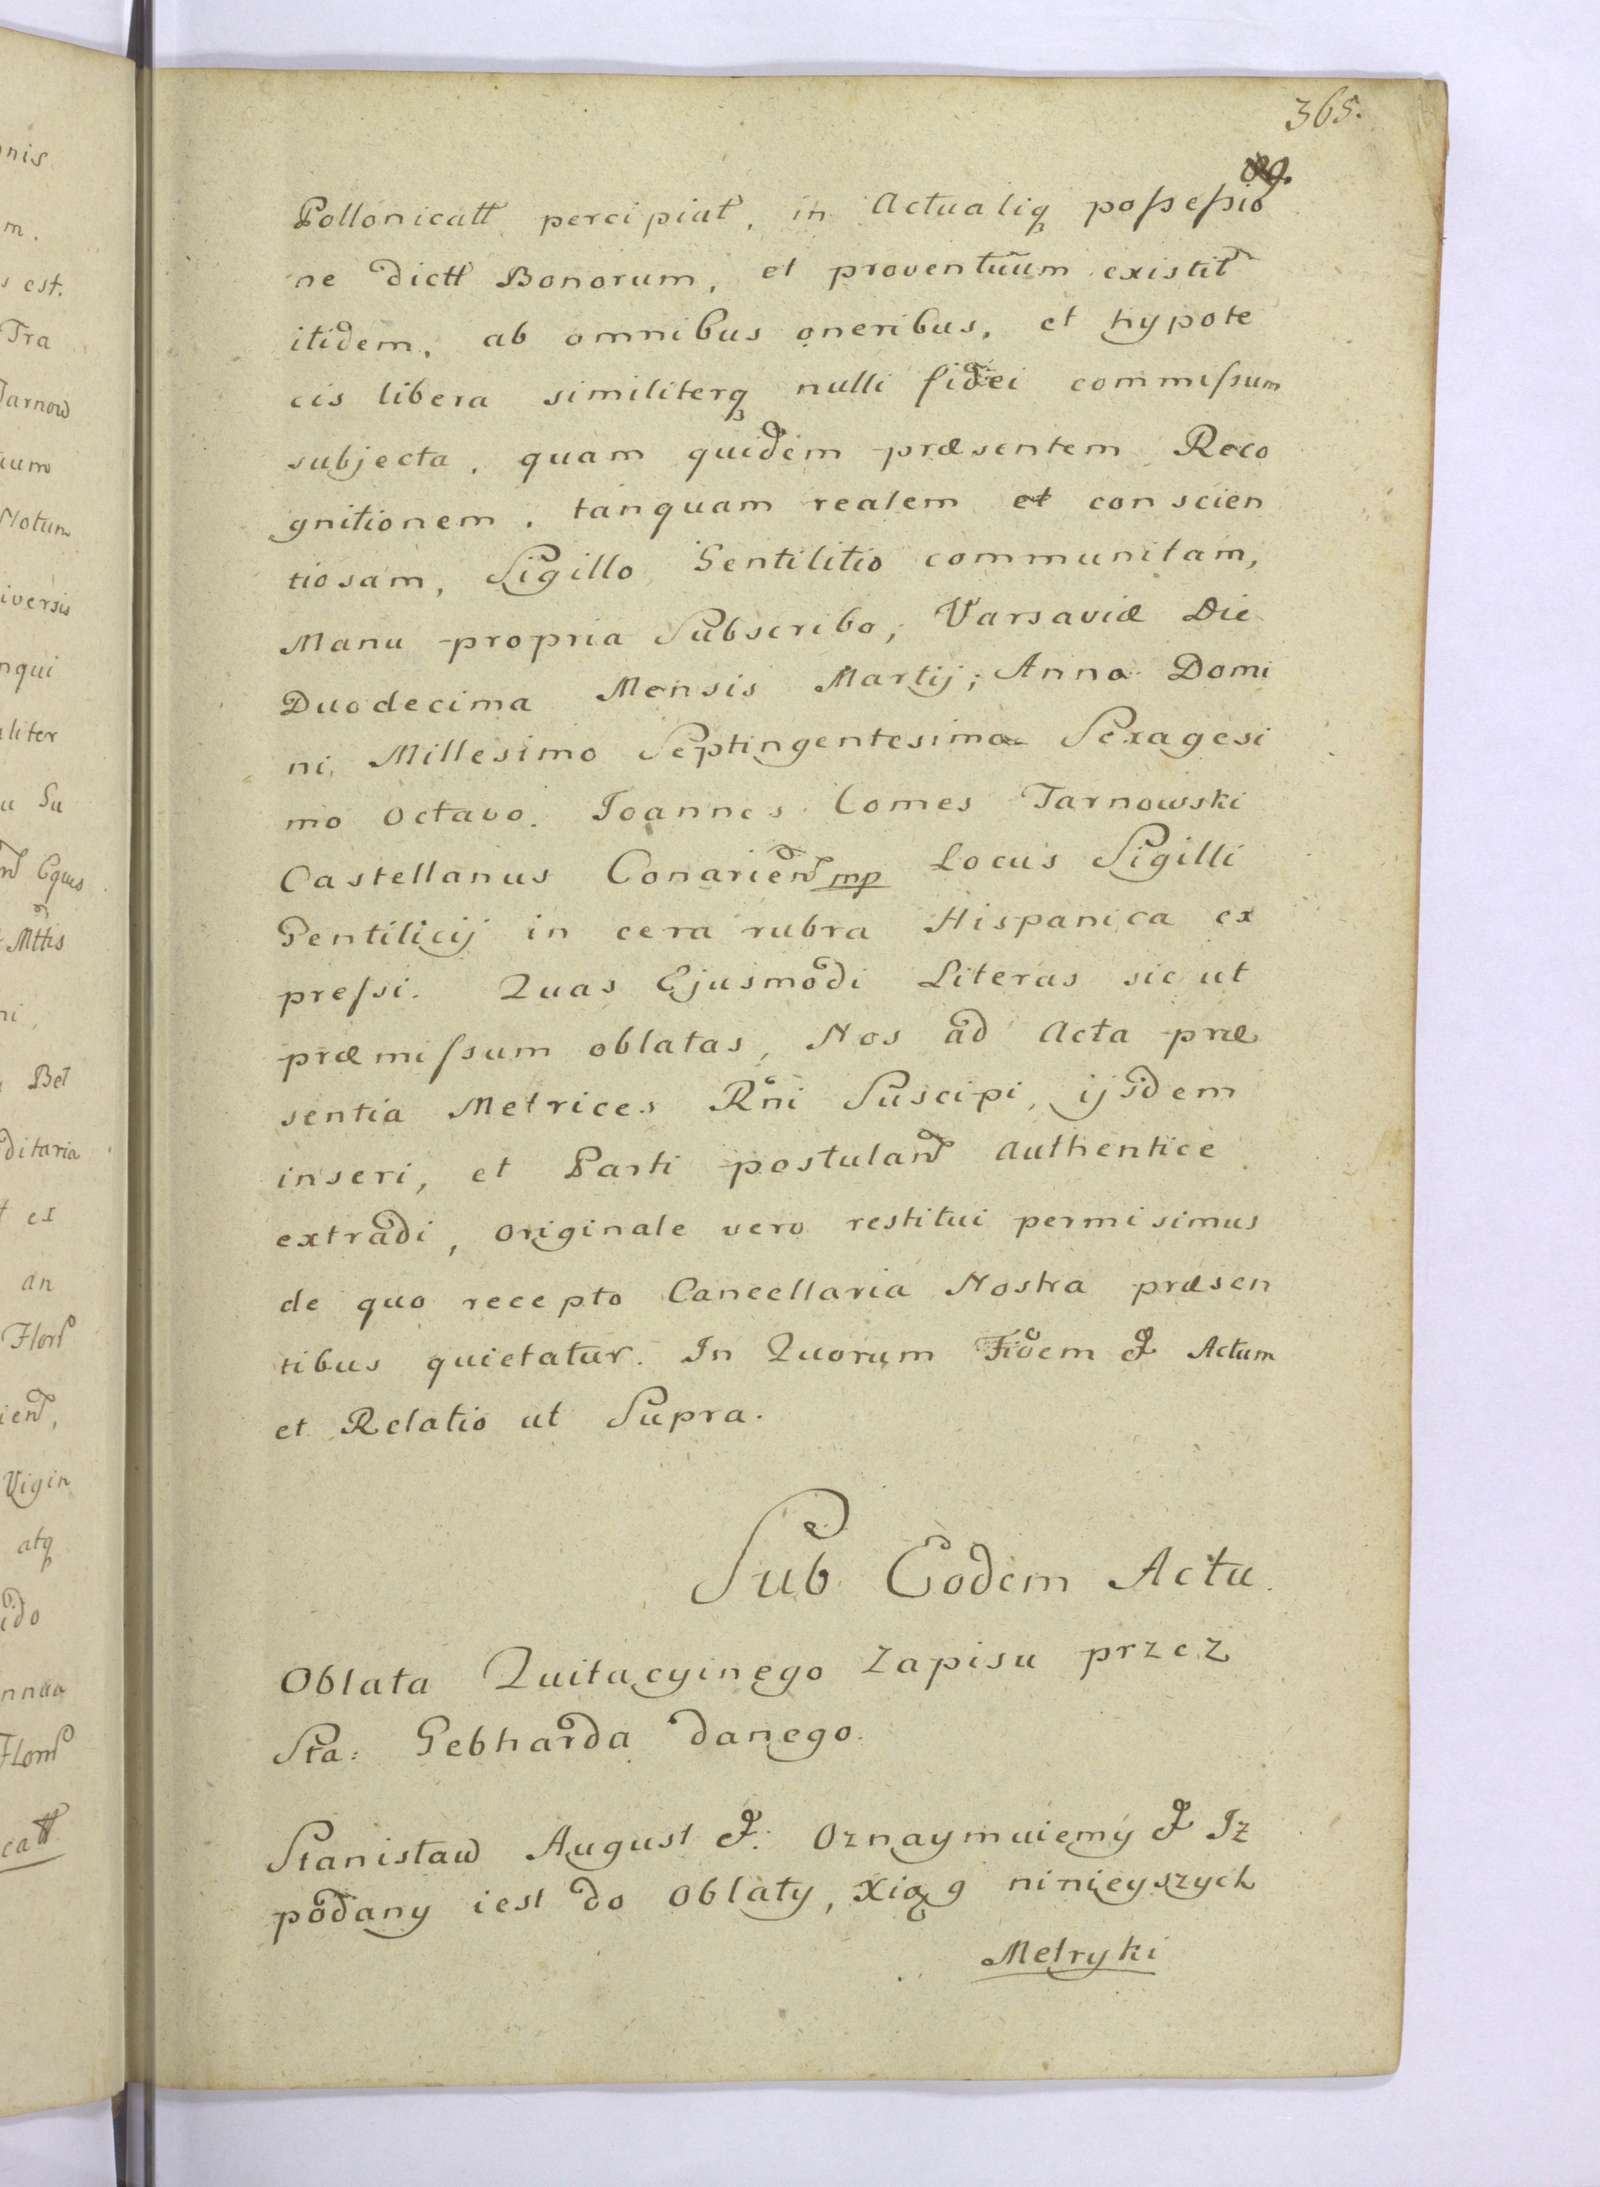 365.
Pollonicatt percipiat, in Actualiq possessio
ne dictt Bonorum, et proventuum existit
itidem, ab omnibus oneribus, et hypote
cis libera similiterq nulli fidei commissum
subjecta, quam quidem præsentem Reco
gnitionem, tanquam realem et conscien
tiosam, Sigillo Gentilitio communitam,
Manu propria Subscribo, Varsaviæ Die
Duodecima Mensis Martij; Anno Domi
ni Millesimo Septingentesimo Sexagesi
mo Octavo. Joannes Comes Tarnowski
Castellanus Conarien mp Locus Sigilli
Gentilicij in cera rubra Hispanica ex
pressi. Quas Ejusmodi Literas sic ut
præmissum oblatas, Nos ad Acta præ
sentia Metrices Rni Suscipi, ijsdem
inseri, et Parti postulan Authentice
extradi, Originale vero restitui permisimus
de quo recepto Cancellaria Nostra præsen
tibus quietatur. In Quorum Fidem & Actum
et Relatio ut Supra.
Sub Eodem Actu.
Oblata Quitacyinego Zapisu przez
Sta: Gebharda danego.
Stanisław August &. Oznaymuiemy & Iż
podany iest do Oblaty, Xiąg ninieyszych
Metryki